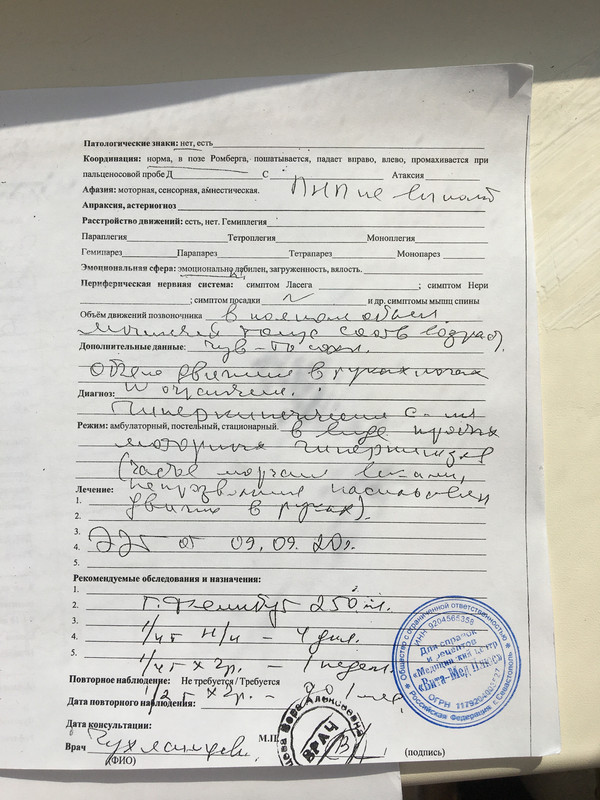 Патологические знаки: нет, есть
Координация: норма, в позе Ромберга, пошатывается, падает вправо, влево, промахивается при
пальценосовой пробе Д С Атаксия
ПНП
Афазия: моторная, сенсорная, амнестическая.
Апраксия, астериогноз
Расстройство движений: есть, нет. Гемиплегия
Параплегия Тетроплегия Моноплегия
Гемипарез Парапарез Тетрапарез Монопарез
Эмоциональная сфера: эмоционально лабилен, загруженность, вялость.
Периферическая нервная система: симптом Ласега ; симптом Нери
; симптом посадки и др. симптомы мышц спины
Объём движений позвоночника в полном объеме
тонус соотв возрасту
Дополнительные данные: чув-ть сохр.
Объем движения в руках, ногах
Диагноз: не ограничен.
Гиперкинетический с-м
Режим: амбулаторный, постельный, стационарный. в виде простых
моторных гиперкинезов
(частые моргания веками,
Лечение: непроизвольные насильствен
1.
2. движения в руках).
3.
4. ЭЭГ от 09.09.20г.
5.
Рекомендуемые обследования и назначения:
1.
2. Т. Фенибут 250
3.
4. 1/4т н/н – 4 дня.
5. 1/4т х 2р. – 1 недел.
Повторное наблюдение: Не требуется / Требуется
1/2т х 2р. –
Дата повторного наблюдения:
Дата консультации:
М.П.
Врач
(ФИО) (подпись)
ВРАЧ
Общество с ограниченной ответственностью
ИНН 9204565358
Для справок
и рецептов
«Медицинский центр
«Вита-Мед Плюс»
ОГРН
Российская Федерация, г. Севастополь